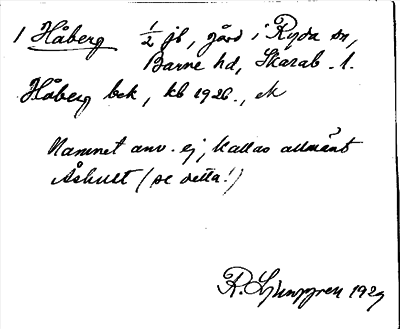 1 Håberg 1/2 jb, gård i Ryda sn,
Barne hd, Skarab. l.
Håberg bek, kb 1926., ek
Namnet anv. ej, kallas allmänt
Åshult (se detta!)
R. Ljunggren 1929